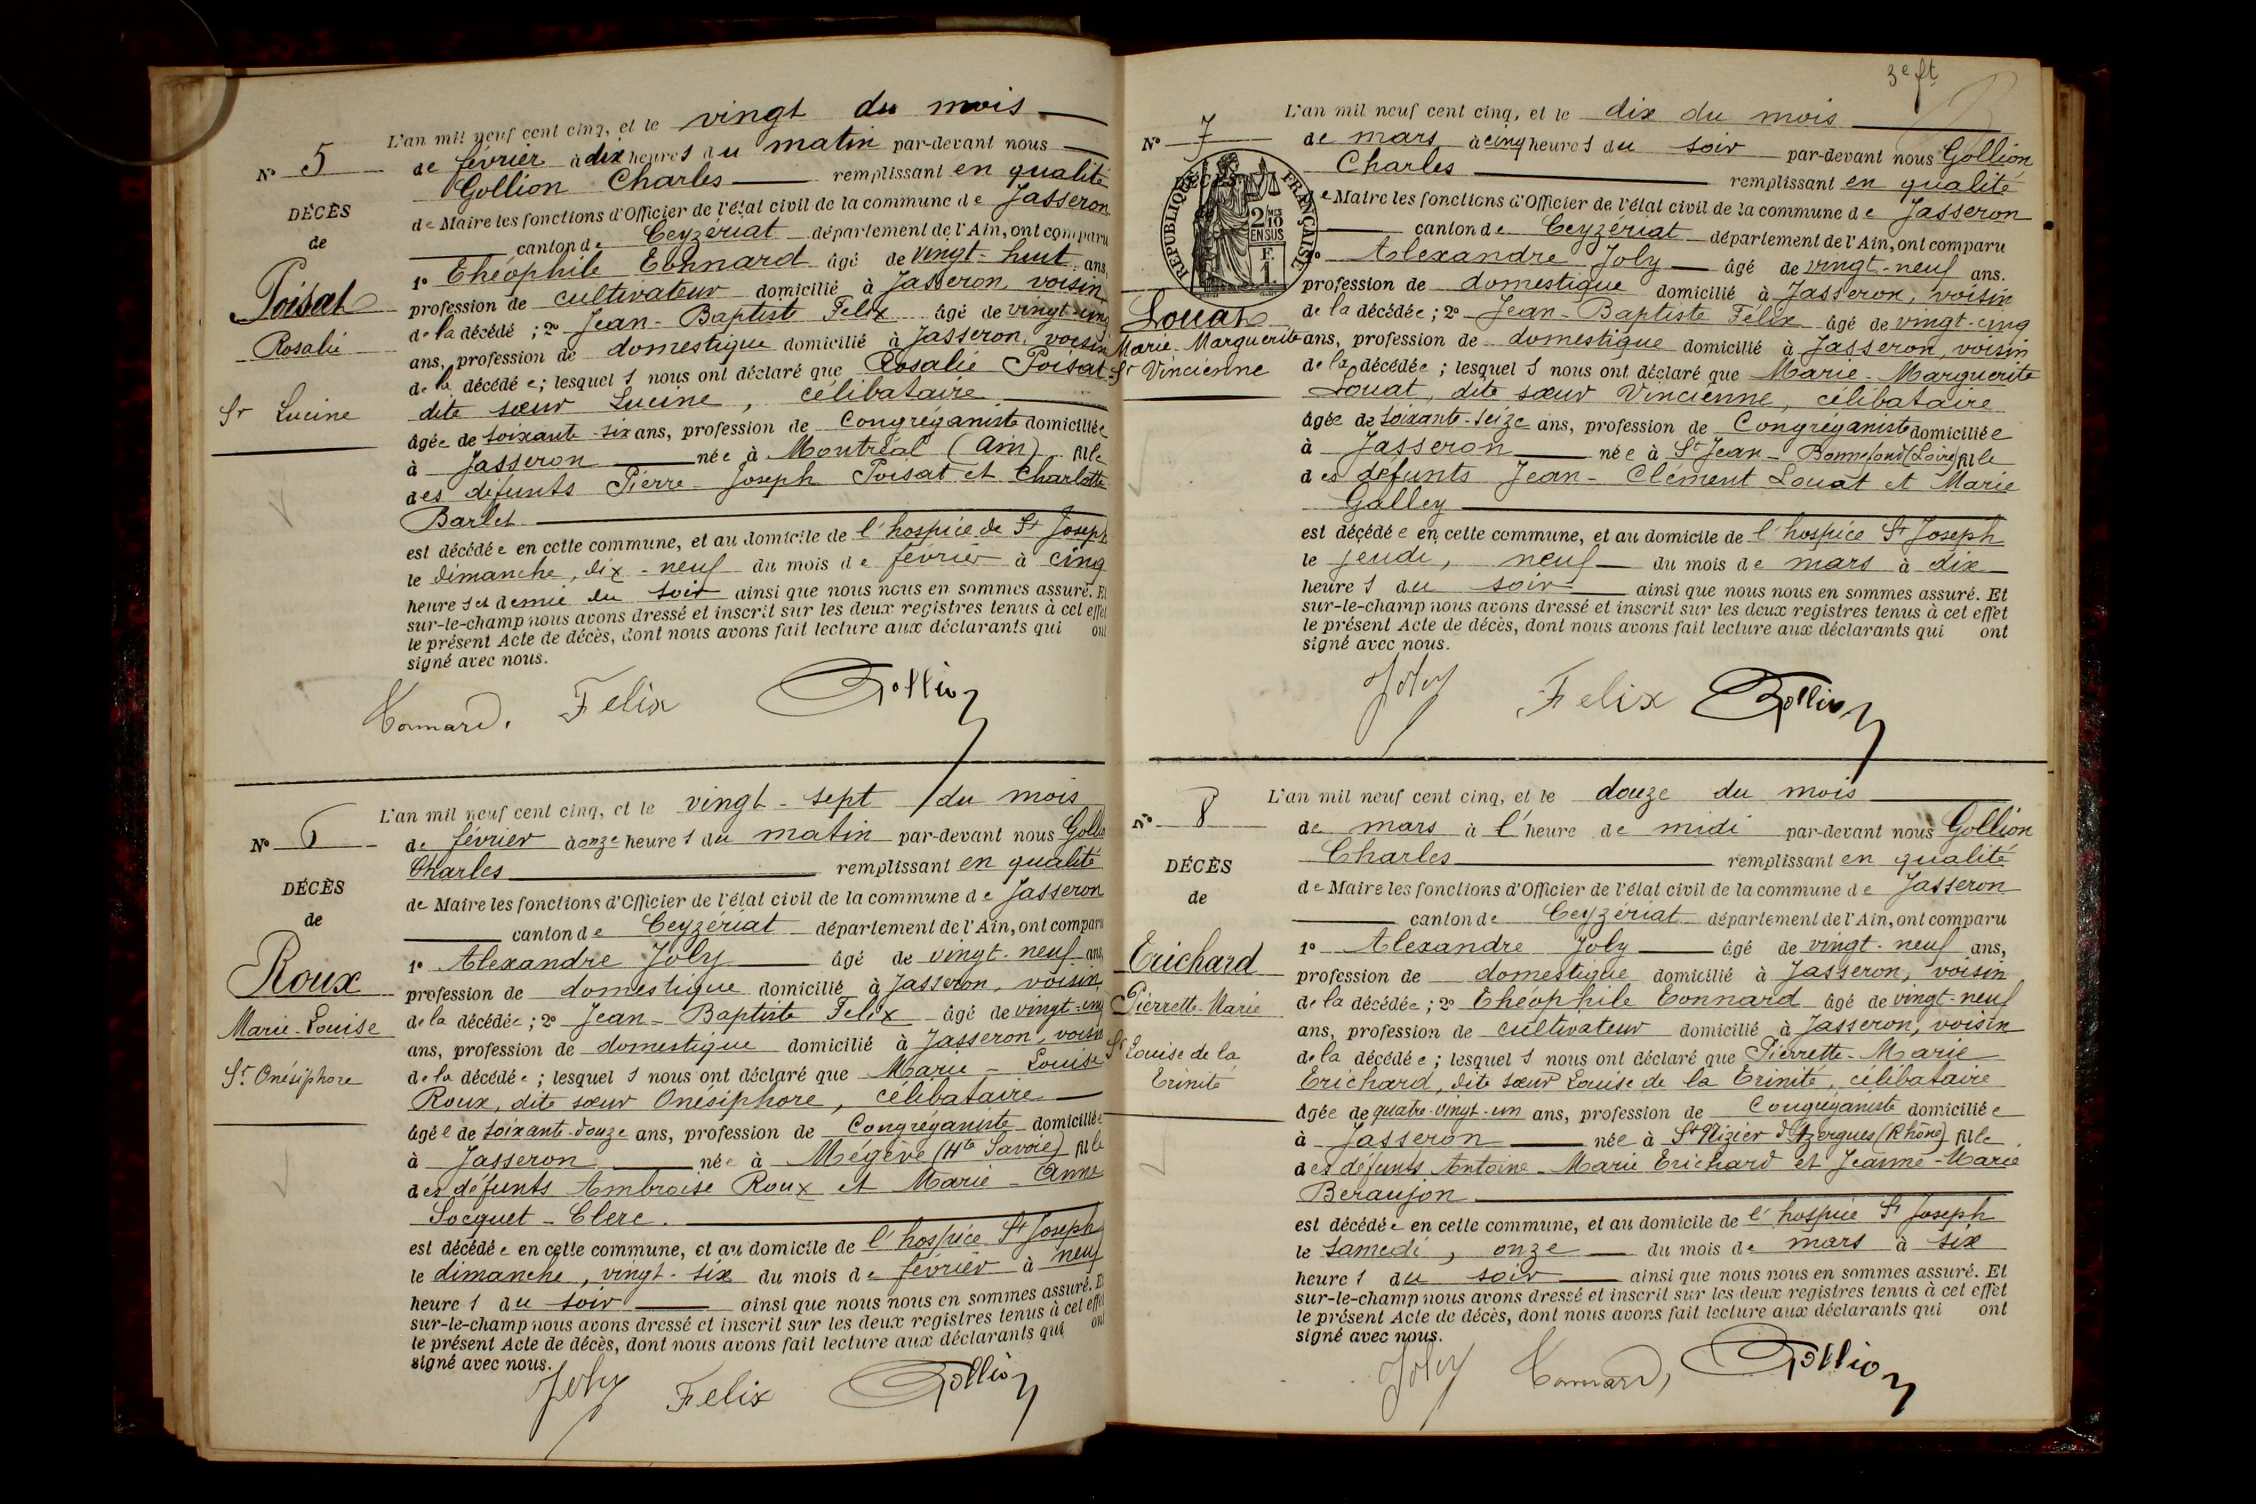 L'an mil neuf cent cinq, et le vingt du mois
N° 5
de février à dix heures du matin par-devant nous
Gollion Charles remplissant en qualité
DÉCÈS
de Maire les fonctions d'Officier de l'état civil de la commune de Jasseron
de
canton de Ceyzériat département de l'Ain, ont comparu
1° Théophile Tonnard âgé de vingt-huit ans,
Poisat
profession de cultivateur domicilié à Jasseron, voisin
de la décédé ; 2° Jean-Baptiste Felix âgé de vingt-cinq
Rosalie
ans, profession de domestique domicilié à Jasseron, voisin
de la décédée ; lesquels nous ont déclaré que Rosalie Poisat
Sr Lucine
dite sœur Lucine, célibataire
âgée de soixante-six ans, profession de Congréganiste domiciliée
à Jasseron née à Montréal (Ain) fille
des défunts Pierre-Joseph Poisat et Charlotte
Barlet
est décédée en cette commune, et au domicile de l'hospice de St Joseph
le dimanche, dix-neuf du mois de février à cinq
heures et demie du soir ainsi que nous nous en sommes assuré. Et
sur-le-champ nous avons dressé et inscrit sur les deux registres tenus à cet effet
le présent Acte de décès, dont nous avons fait lecture aux déclarants qui ont
signé avec nous.
Tonnard. Felix Gollion
L'an mil neuf cent cinq, et le vingt-sept du mois
N° 6
de février à onze heures du matin par-devant nous Gollion
Charles remplissant en qualité
DÉCÈS
de Maire les fonctions d'Officier de l'état civil de la commune de Jasseron
de
canton de Ceyzériat département de l'Ain, ont comparu
1° Alexandre Joly âgé de vingt-neuf ans,
Roux
profession de domestique domicilié à Jasseron, voisin
de la décédée ; 2° Jean-Baptiste Felix âgé de vingt-cinq
Marie-Louise
ans, profession de domestique domicilié à Jasseron, voisin
Sr Onésiphore
de la décédée ; lesquels nous ont déclaré que Marie-Louise
Roux, dite sœur Onésiphore, célibataire
âgée de soixante-douze ans, profession de Congréganiste domiciliée
à Jasseron née à Mégève (Hte Savoie) fille
des défunts Ambroise Roux et Marie-Anne
Socquet-Clerc.
est décédée en cette commune, et au domicile de l'hospice St Joseph
le dimanche, vingt-six du mois de février à neuf
heures du soir ainsi que nous nous en sommes assuré. Et
sur-le-champ nous avons dressé et inscrit sur les deux registres tenus à cet effet
le présent Acte de décès, dont nous avons fait lecture aux déclarants qui ont
signé avec nous.
Joly Felix Gollion
3e ft
L'an mil neuf cent cinq, et le dix du mois
N° 7
de mars à cinq heures du soir par-devant nous Gollion
Charles remplissant en qualité
DÉCÈS
RÉPUBLIQUE FRANÇAISE
2 MES 10 EN SUS
F. 1
de Maire les fonctions d'Officier de l'état civil de la commune de Jasseron
canton de Ceyzériat département de l'Ain, ont comparu
1° Alexandre Joly âgé de vingt-neuf ans.
profession de domestique domicilié à Jasseron, voisin
Louat
de la décédée ; 2° Jean-Baptiste Félix âgé de vingt-cinq
Marie-Marguerite
ans, profession de domestique domicilié à Jasseron, voisin
Sr Vincienne
de la décédée ; lesquels nous ont déclaré que Marie-Marguerite
Louat, dite sœur Vincienne, célibataire
âgée de soixante-seize ans, profession de Congréganiste domiciliée
à Jasseron née à St Jean-Bonnefond (Loire) fille
des défunts Jean-Clément Louat et Marie
Galley
est décédée en cette commune, et au domicile de l'hospice St Joseph
le jeudi, neuf du mois de mars à dix
heures du soir ainsi que nous nous en sommes assuré. Et
sur-le-champ nous avons dressé et inscrit sur les deux registres tenus à cet effet
le présent Acte de décès, dont nous avons fait lecture aux déclarants qui ont
signé avec nous.
Joly Felix Gollion
L'an mil neuf cent cinq, et le douze du mois
N° 8
de mars à l'heure de midi par-devant nous Gollion
Charles remplissant en qualité
DÉCÈS
de Maire les fonctions d'Officier de l'état civil de la commune de Jasseron
de
canton de Ceyzériat département de l'Ain, ont comparu
1° Alexandre Joly âgé de vingt-neuf ans,
Trichard
profession de domestique domicilié à Jasseron, voisin
Pierrette-Marie
de la décédée ; 2° Théophile Tonnard âgé de vingt-neuf
ans, profession de cultivateur domicilié à Jasseron, voisin
Sr Louise de la
de la décédée ; lesquels nous ont déclaré que Pierrette-Marie
Trinité
Trichard, dite sœur Louise de la Trinité, célibataire
âgée de quatre-vingt-un ans, profession de Congréganiste domiciliée
à Jasseron née à St Nizier d'Azergues (Rhône) fille
des défunts Antoine-Marie Trichard et Jeanne-Marie
Beraujon
est décédée en cette commune, et au domicile de l'hospice St Joseph
le samedi, onze du mois de mars à six
heures du soir ainsi que nous nous en sommes assuré. Et
sur-le-champ nous avons dressé et inscrit sur les deux registres tenus à cet effet
le présent Acte de décès, dont nous avons fait lecture aux déclarants qui ont
signé avec nous.
Joly Tonnard, Gollion